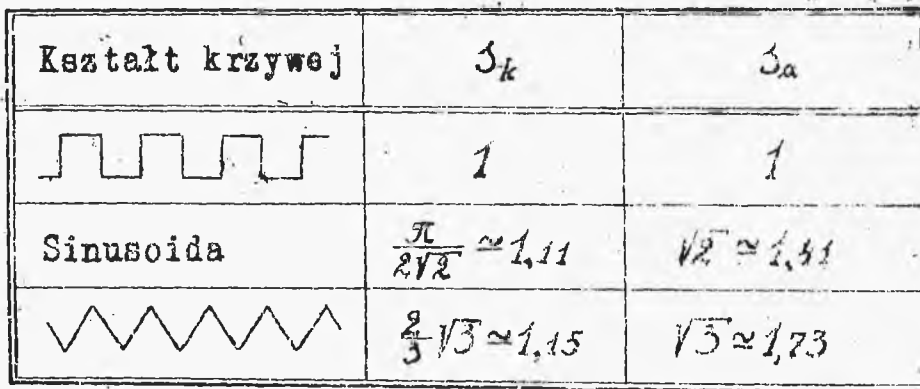 Kształt krzywej s_k s_a
1 1
Sinusoida π/2√2 ≃ 1,11 √2 ≃ 1,41
2/3 √3 ≃ 1,15 √3 ≃ 1,73